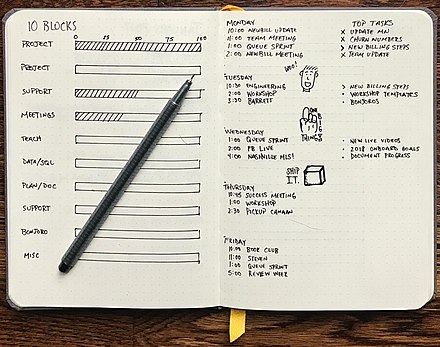 10 BLOCKS
0 25 50 75 100
PROJECT
PROJECT
SUPPORT
MEETINGS
TEACH
DATA/SQL
PLAN/DOC
SUPPORT
BONJORO
MISC
MONDAY
10:00 NEWBILL UPDATE
11:00 TEAM MEETING
1:00 QUEUE SPRINT
2:00 NEWBILL MEETING
TOP TASKS
X UPDATE MN
X CHURN NUMBERS
> NEW BILLING STEPS
X TEAM UPDATE
WOO!
TUESDAY
10:30 ENGINEERING
2:00 WORKSHOP
3:30 BARRETT
> NEW BILLING STEPS
• WORKSHOP TEMPLATES
• BONJOROS
THINGS
WEDNESDAY
1:00 QUEUE SPRINT
2:00 PB LIVE
4:00 NASHVILLE MLS!
• NEW LIVE VIDEOS
• 2018 ONBOARD GOALS
• DOCUMENT PROGRESS
SHIP
IT.
THURSDAY
10:45 SUCCESS MEETING
1:00 WORKSHOP
2:30 PICKUP CANAAN
FRIDAY
10:00 BOOK CLUB
11:00 STEVEN
1:00 QUEUE SPRINT
5:00 REVIEW WEEK